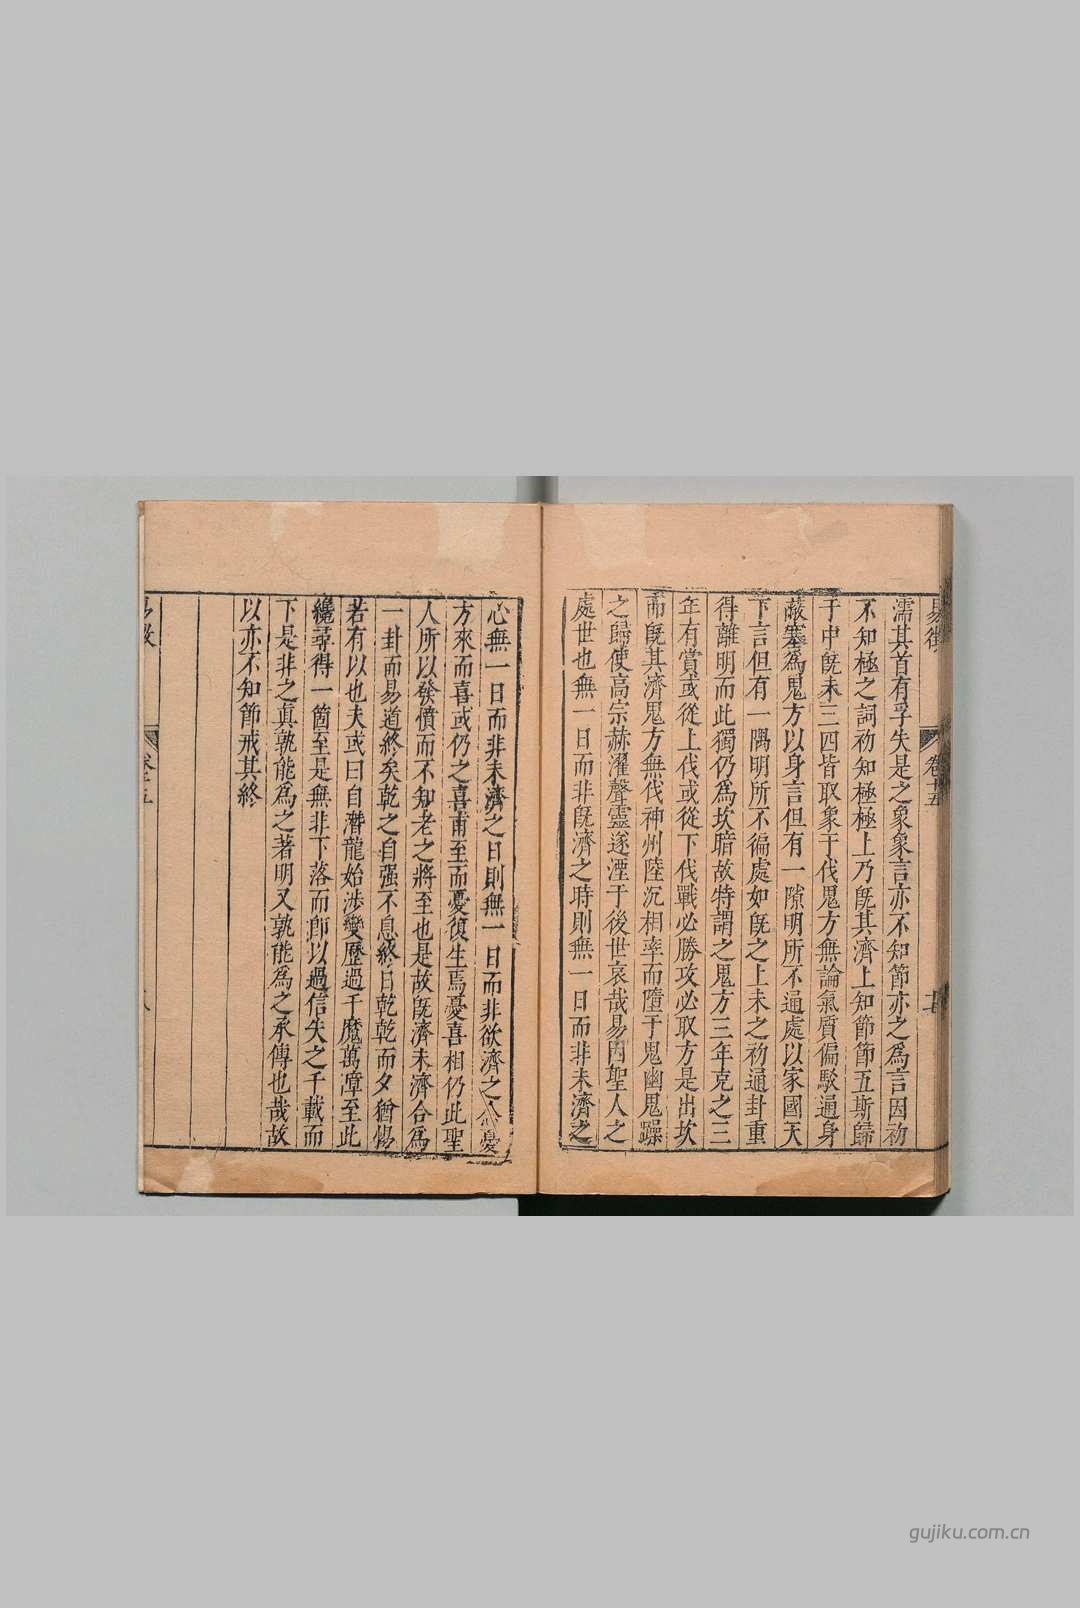 易
卷十五
濡其首有孚失是之象象言亦不知節亦之為言因初
不知極之詞初知極極上乃旣其濟上知節節五斯歸
于中旣未三四皆取象于伐鬼方無論氣質偏駁通身
蔽塞爲鬼方以身言但有一隙明所不通處以家國天
下言但有一隅明所不徧處如旣之上未之初通卦重
得離明而此獨仍爲坎暗故特謂之鬼方三年克之三
年有賞或從上伐或從下伐戰必勝攻必取方是出坎
而旣其濟鬼方無伐神州陸沉相率而墮于鬼幽鬼躁
之歸使高宗赫濯聲靈遂湮于後世哀哉易因聖人之
處世也無一日而非旣濟之時則無一日而非未濟之
心無一日而非未濟之日則無一日而非欲濟之念憂
方來而喜或仍之喜甫至而憂復生焉憂喜相仍此聖
人所以發憤而不知老之將至也是故旣濟未濟合爲
一卦而易道終矣乾之自强不息終日乾乾而夕猶惕
若有以也夫或曰自潛龍始涉變歷過千魔萬障至此
纔尋得一箇至是無非下落而卽以過信失之千載而
下是非之眞孰能為之著明又孰能為之承傳也哉故
以亦不知節戒其終